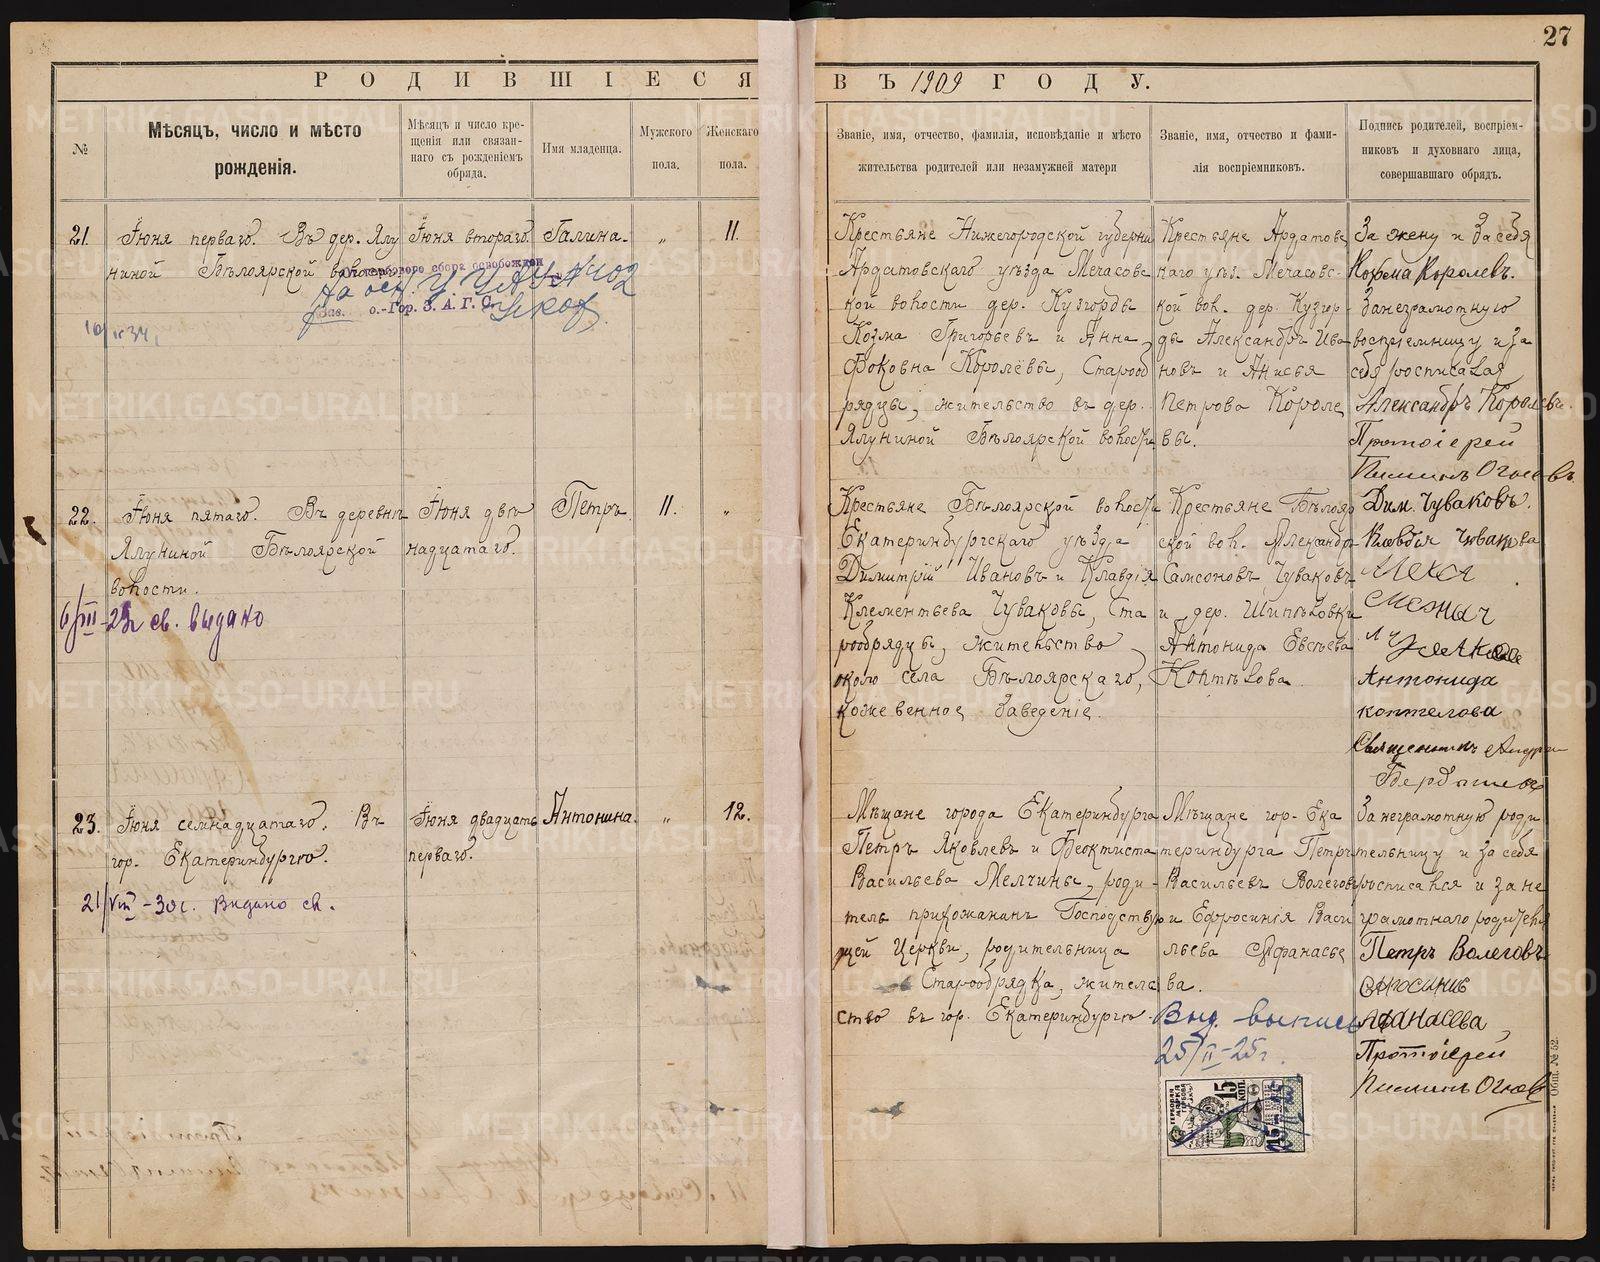 27
РОДИВШІЕСЯ ВЪ 1909 ГОДУ.
№
Мѣсяцъ, число и мѣсто
рожденія.
Мѣсяцъ и число кре-
щенія или связан-
наго съ рожденіемъ
обряда.
Имя младенца.
Мужского
пола.
Женскаго
пола.
Званіе, имя, отчество, фамилія, исповѣданіе и мѣсто
жительства родителей или незамужней матери
Званіе, имя, отчество и фами-
лія воспріемниковъ.
Подпись родителей, воспріем-
никовъ и духовнаго лица,
совершавшаго обрядъ.
21.
Іюня перваго. Въ дер. Ялу
ниной Бѣлоярской волости
Іюня второго.
Галина.
„
11.
сбора освобожден
о.-Гор. З. А. Г. С.
Зав.
Крестьяне Нижегородской губерни
Ардатовскаго уѣзда Мечасовс
кой волости дер. Кузгорды
Козма Григорьевъ и Анна
Фоковна Королёвы, Старооб
рядцы, жительство въ дер.
Ялуниной Бѣлоярской волости
Крестьяне Ардатовс
каго уѣз. Мечасовс-
кой вол. дер. Кузгор-
ды Александръ Ива
новъ и Анисья
Петрова Короле
вы.
За жену и за себя
Козьма Королевъ.
Занеграмотную
воспріемницу и за
себя росписался
Александръ Королевъ.
Протоіерей
22.
Іюня пятаго. Въ деревнѣ
Ялуниной Бѣлоярской
волости.
6/VIII-23г св. выдано
Іюня двѣ
надцатаго.
Петръ.
11.
„
Крестьяне Бѣлоярской волости
Екатеринбургскаго уѣзда
Димитрій Ивановъ и Клавдія
Клементьева Чуваковы, Ста
рообрядцы, жительство
около села Бѣлоярскаго,
кожевенное заведеніе.
Крестьяне Бѣлояр
ской вол. Александръ
Самсоновъ Чуваковъ
и дер. Шипѣловки
Антонида Евсѣева
Коптѣлова
Дим. Чуваковъ.
Клавдія Чувакова
Антонида
коптелова
Священникъ Андрей
23.
Іюня семнадцатаго. Въ
гор. Екатеринбургѣ.
21/VIII-30г. Видано св.
Іюня двадцать
перваго.
Антонина.
„
12.
Мѣщане города Екатеринбурга
Петръ Яковлевъ и Феоктиста
Васильева Мелчины, роди-
тель прихожанинъ Господствую
щей Церкви, родительница
Старообрядка, житель
ство въ гор. Екатеринбургѣ.
Мѣщане гор. Ека
теринбурга Петръ
Васильевъ Волеговъ
и Ефросинія Васи
льева Афанасье
ва.
Выд. выпись
25/II-25г.
За неграмотную роди
тельницу и за себя
росписался и за не
грамотнаго родителя
Петръ Волеговъ
Афанасева
Протоіерей
ГЕРБОВАЯ
МАРКА
15
КОП.